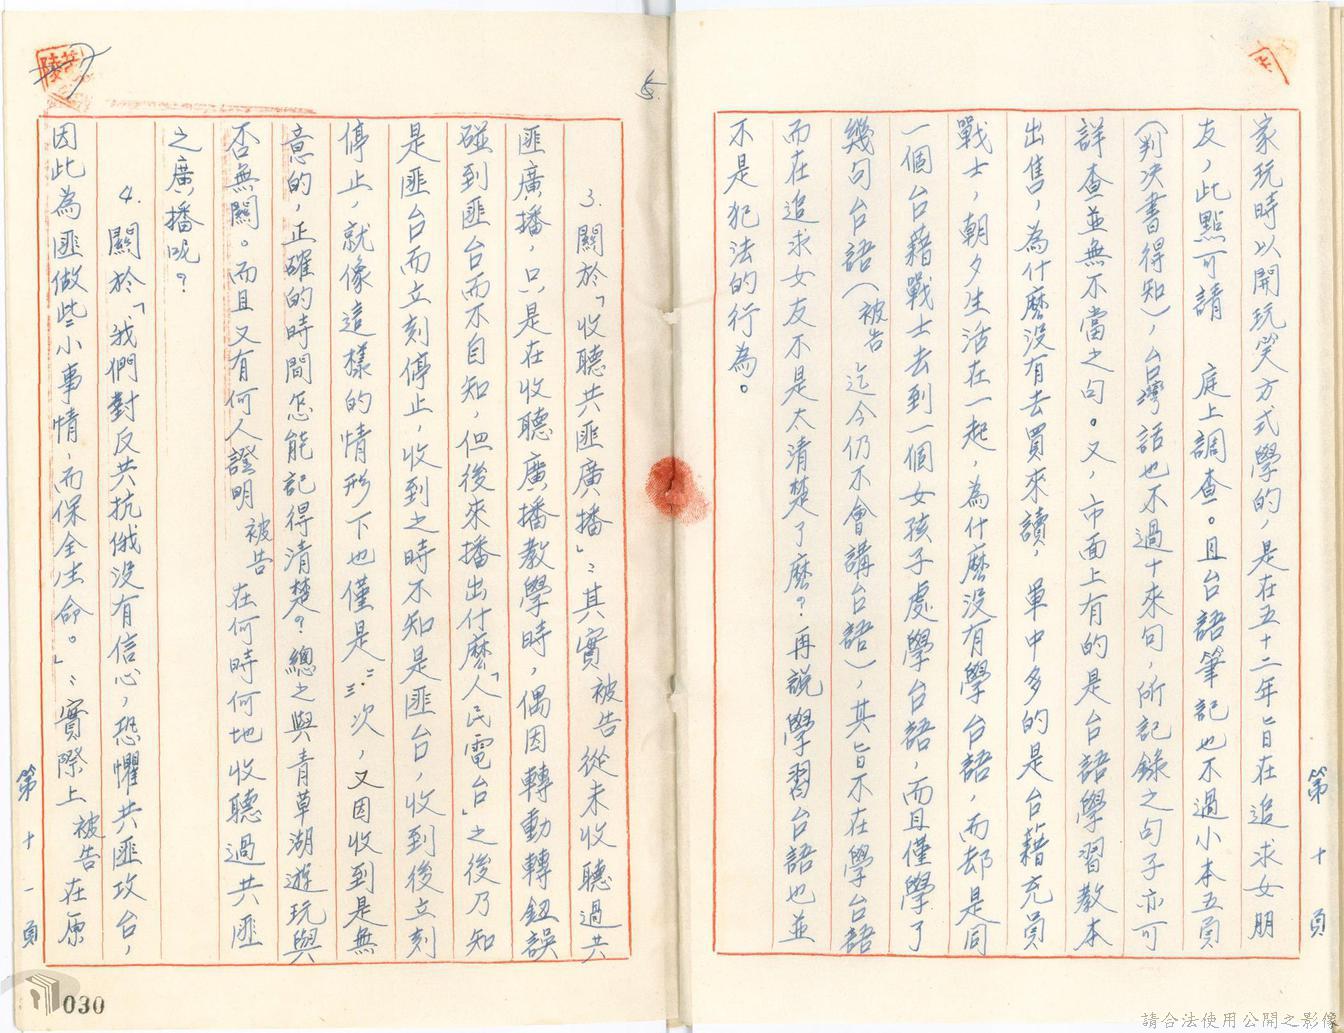 家玩時以開玩笑方式學的，是在五十二年旨在追求女朋
友，此點可請　庭上調查。且台語筆記也不過小本五頁
（判決書得知），台灣話也不過十來句，所記錄之句子亦可
詳查並無不當之句。又，市面上有的是台語學習教本
出售，為什麼沒有去買來讀，單中多的是台籍充員
戰士，朝夕生活在一起，為什麼沒有學台語，而却是同
一個台籍戰士去到一個女孩子處學台語，而且僅學了
幾句台語（被告迄今仍不會講台語），其旨不在學台語
而在追求女友不是太清楚了麼？再說學習台語也並
不是犯法的行為。
第十頁
5.
3. 關於「收聽共匪廣播」：其實被告從未收聽過共
匪廣播，只是在收聽廣播教學時，偶因轉動轉鈕誤
碰到匪台而不自知，但後來播出什麼「人民電台」之後乃知
是匪台而立刻停止，收到之時不知是匪台，收到後立刻
停止，就像這樣的情形下也僅是二.三次，又因收到是無
意的，正確的時間怎能記得清楚？總之與青草湖遊玩與
否無關。而且又有何人證明被告在何時何地收聽過共匪
之廣播呢？
4. 關於「我們對反共抗俄沒有信心，恐懼共匪攻台，
因此為匪做些小事情，而保全生命。」：實際上被告在原
第十一頁
030
請合法使用公開之影像